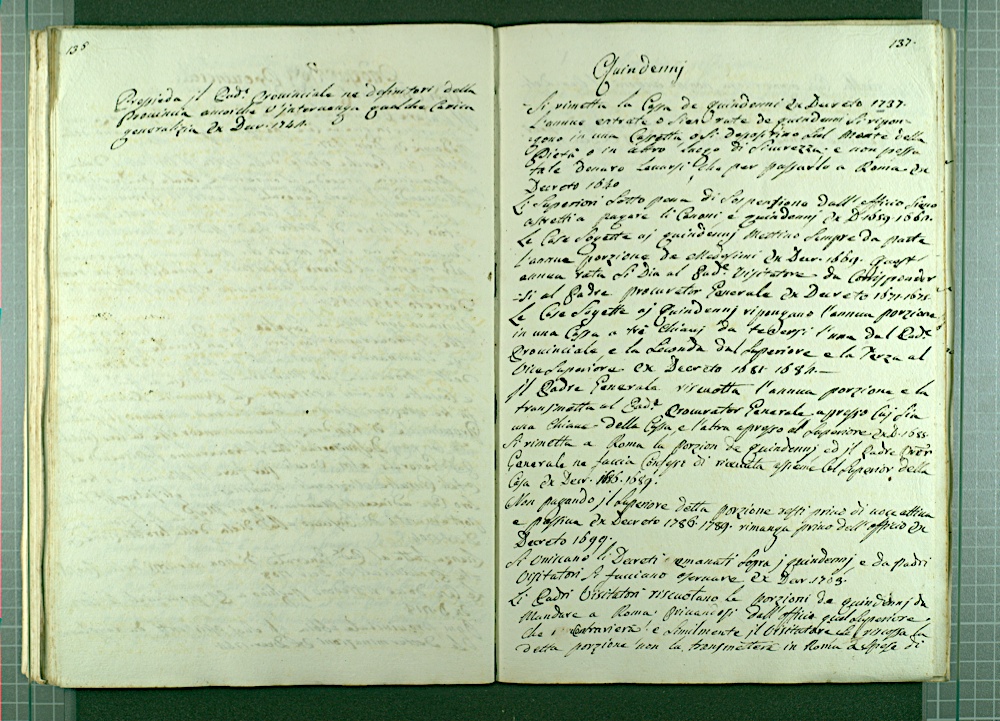 136
Pressieda jl Pad.e Provinciale ne definitori della
Provincia ancorche v'intervenga qualche Carica
generalizia Ex Decr. 1744.
137.
Quindennj
Si rimetta la Cassa de quindenni Ex Decreto 1737.
L'annue entrate o sien rate de quindenni si ripon-
gono in una Cassetta o si depositino sul Monte della
Pietà o in altro luogo di sicurezza e non possa
tale denaro levarsi che per passarlo a Roma Ex
Decreto 1640
Li Superiori sotto pena di sospensione dall'officio sieno
astretti a pagare li Canoni e quindennj Ex D. 1659. 1661.
Le Case Sogette aj quindennj mettino sempre da parte
l'annua porzione de Medesimi Ex Decr. 1669. quest'
annua rata si Dia al Pad.e Visitatore da Corrisponder
-si al Padre procurator Generale Ex Decreto 1671. 1675.
Le Case Sogette aj Quindennj ripongano l'annua porzione
in una Cassa a tré Chiavj da tenersi l'una dal Pad.e
Provinciale e la Seconda dal Superiore e la Terza al
Vice Superiore Ex Decreto 1681. 1684.—
Jl Padre Generale riscuotta l'annua porzione e la
transmetta al Pad.e Procurator Generale appresso luj sia
una Chiave della Cassa e l'altra appresso al Superiore Ex D. 1685.
Si rimetta a Roma la porzion de quindennj ed jl Padre
Generale ne faccia Confessi di riceuta assieme col Superior della
Casa Ex Decr. 1686. 1689.
Non pagando jl Superiore detta porzione resti privo di voce attiva
e passiva Ex Decreto 1786. 1789. rimanga privo dell'officio Ex
Decreto 1699.
Si Uniscano li Decreti emanati sopra j quindennj e da padri
Visitatori si facciano osservare Ex Decr. 1703.
Li Padri Visitatori riscuotano le porzioni de quindennj da
Mandare a Roma privandosi dall'officio quel Superiore
che contraverrà e similmente jl Visitatore che riscossa la
detta porzione non la transmetterà in Roma a spese di